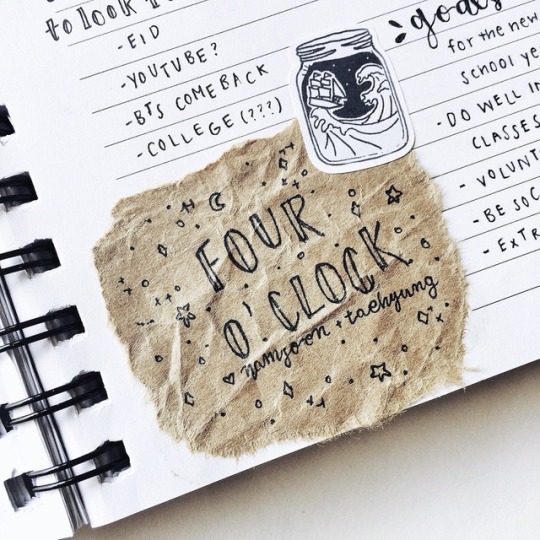 to look
- EID
- YOUTUBE?
- BTS COMEBACK
- COLLEGE (???)
goals
for the new
school
- DO WELL IN
CLASSES
-
- BE
-
FOUR
O'CLOCK
♡ namjoon + taehyung